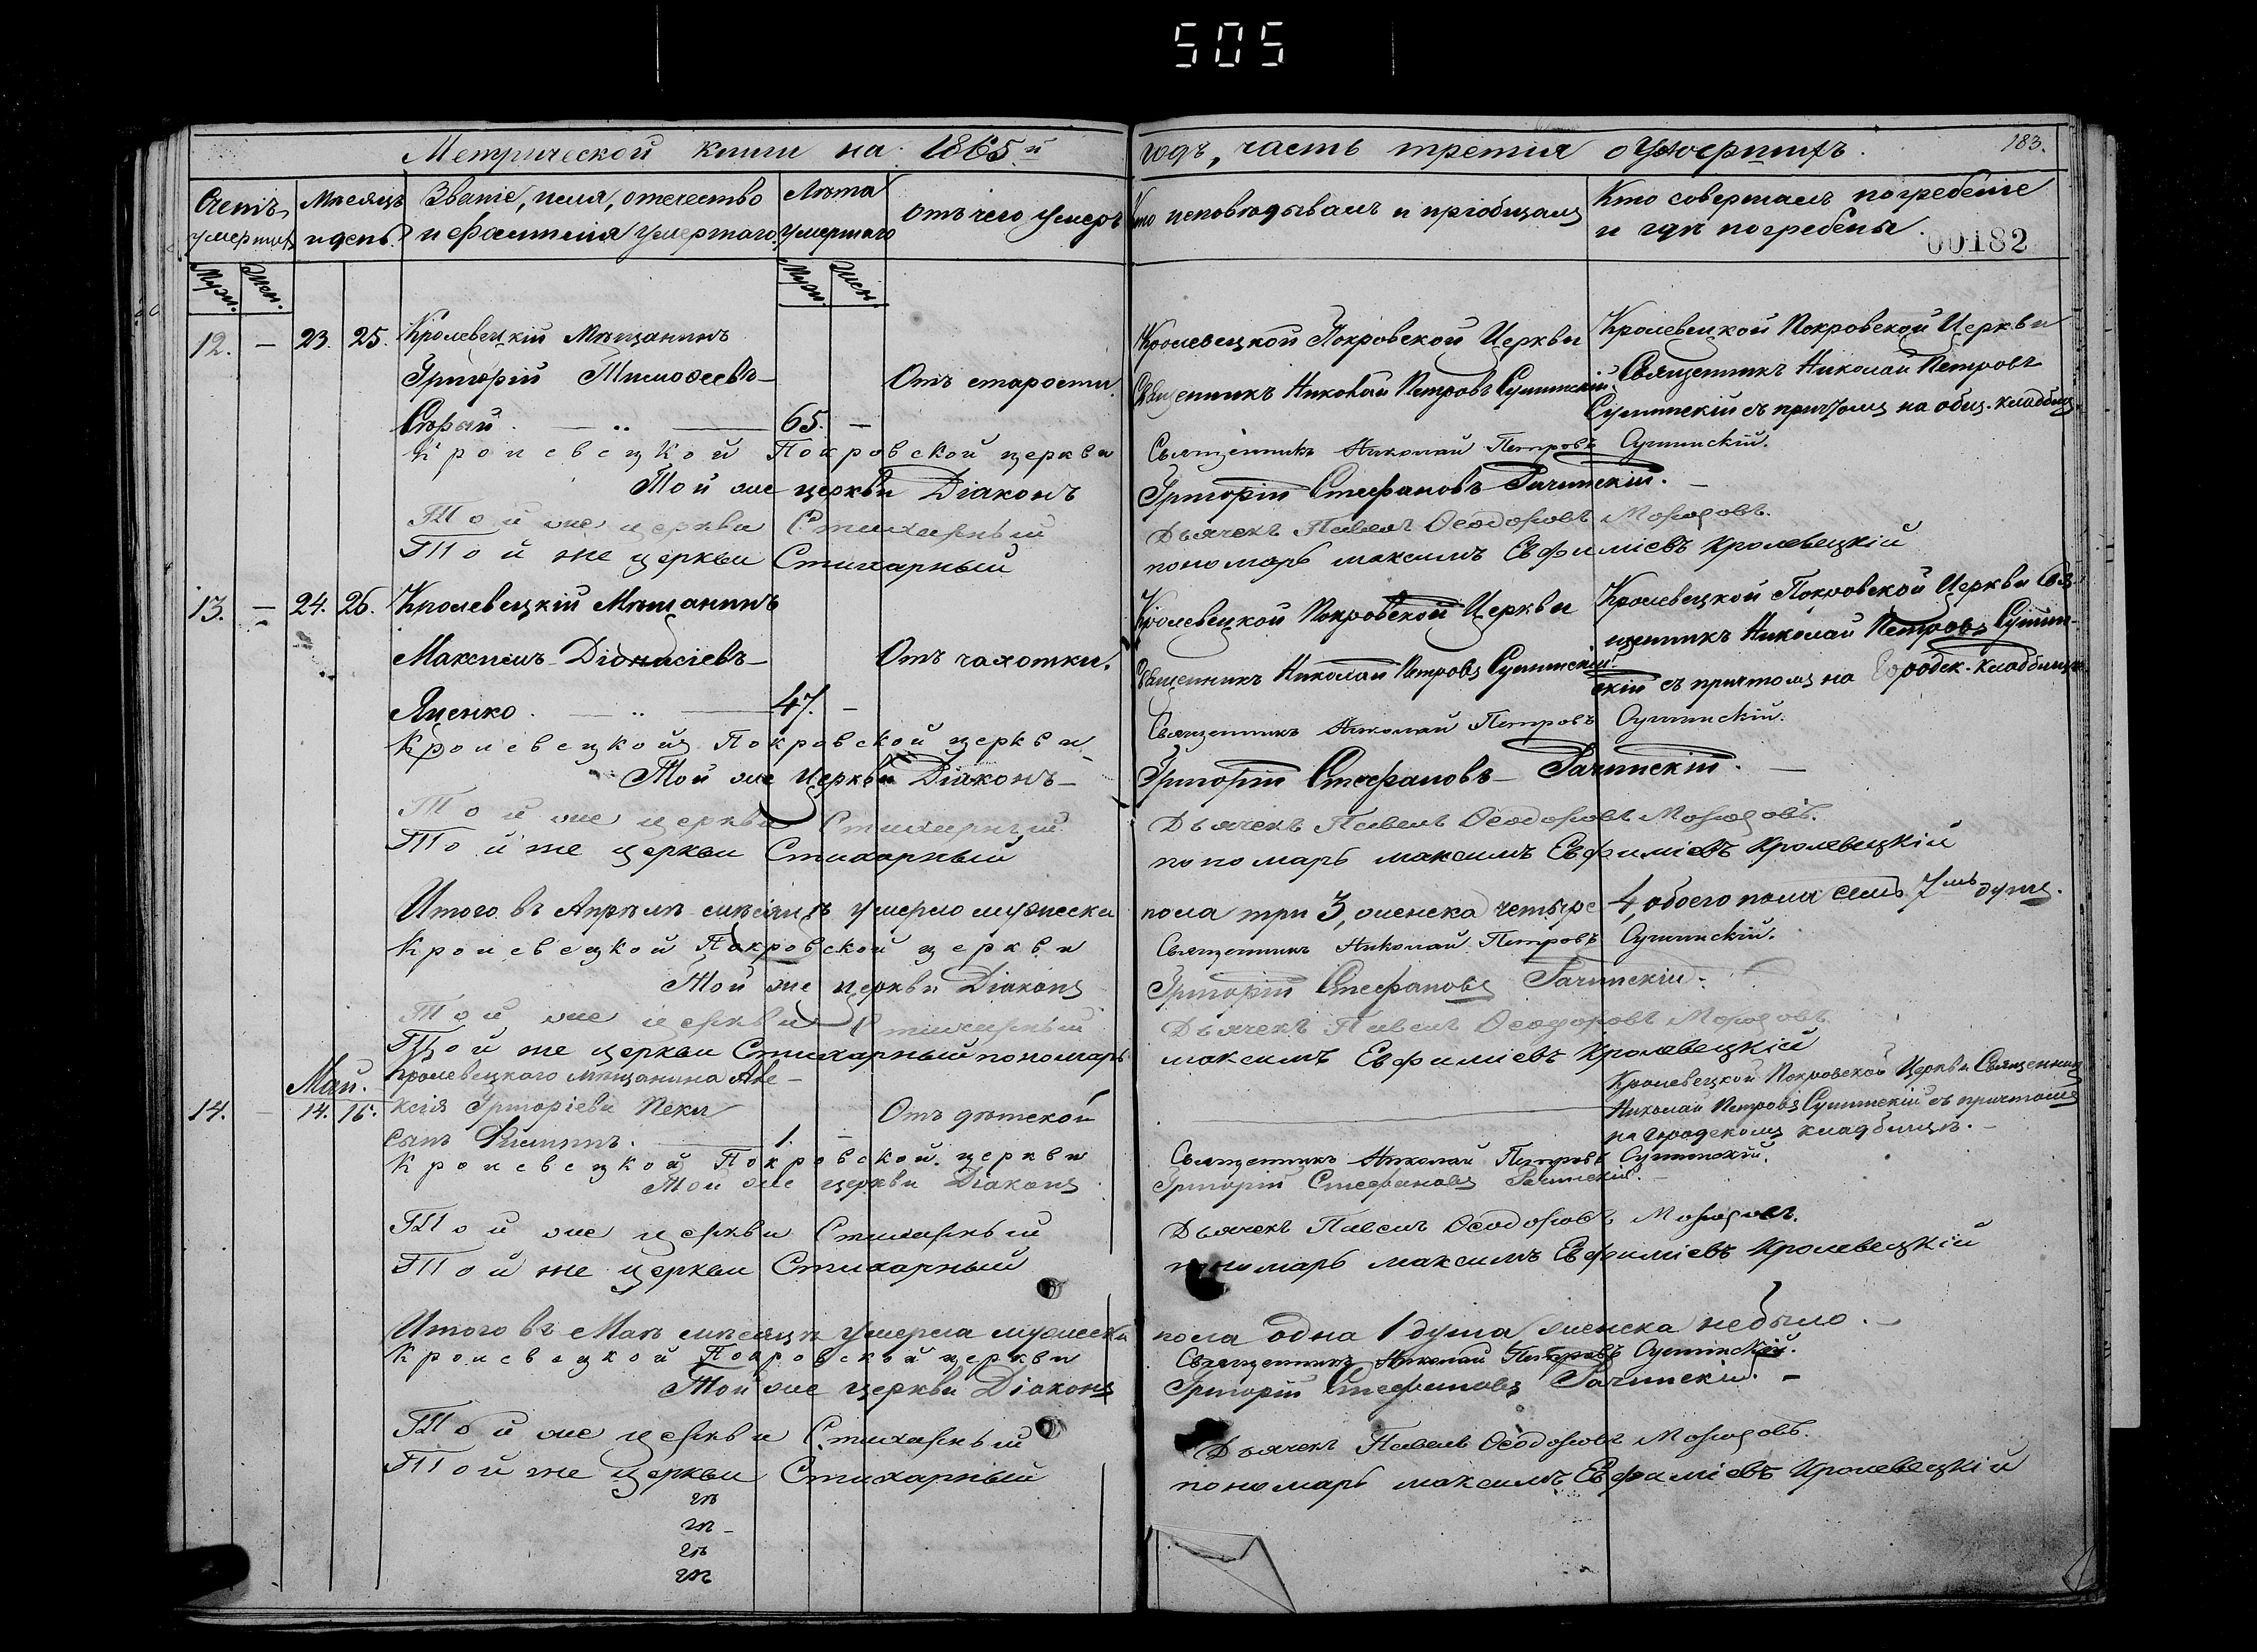 505
Метрической книги на 1865й
годъ, часть третія о умершихъ.
183.
00182
Счетъ умершихъ
Мѣсяцъ и день.
Званіе, имя, отечество и фамилія умершаго
Лѣта умершаго
Отъ чего умеръ
Кто исповѣдывалъ и пріобщалъ
Кто совершалъ погребеніе и гдѣ погребены.
Муж. Жен.
Муж. Жен.
12. — 23. 25. Кролевецкій Мѣщанинъ
Григорій Тимофеевъ
65. —
Отъ старости.
Кролевецкой Покровской Церкви
Священникъ Николай Петровъ
Кролевецкой Покровской Церкви
Священникъ Николай Петровъ
съ причтомъ на общ. кладбищ.
Кролевецкой Покровской церкви
Священникъ Николай Петровъ
Той же церкви Діаконъ
Григорій Стефановъ
Той же церкви Стихарный
Дьячекъ Павелъ Ѳеодоровъ
Той же церкви Стихарный
пономарь максимъ Евфиміевъ Кролевецкій
13. — 24. 26. Кролевецкій Мѣщанинъ
Максимъ Діонисіевъ
Яценко. 47. —
Отъ чахотки.
Кролевецкой Покровской Церкви
Священникъ Николай Петровъ
Кролевецкой Покровской Церкви Свя-
щенникъ Николай Петровъ
скій съ причтомъ на Городск. кладбищѣ
Кролевецкой Покровской церкви
Священникъ Николай Петровъ
Той же церкви Діаконъ
Григорій Стефановъ
Той же церкви Стихарный
Дьячекъ Павелъ Ѳеодоровъ
Той же церкви Стихарный
пономарь максимъ Евфиміевъ Кролевецкій
Итого въ Апрѣлѣ мѣсяцѣ умерло мужеска
пола три 3, женска четыре 4, обоего пола семь 7мь душъ.
Кролевецкой Покровской церкви
Священникъ Николай Петровъ
Той же церкви Діаконъ
Григорій Стефановъ
Той же церкви Стихарный
Дьячекъ Павелъ Ѳеодоровъ
Той же церкви Стихарный пономарь
максимъ Евфиміевъ Кролевецкій
Май.
14. — 14. 16. Кролевецкаго мѣщанина Але-
ксія Григоріева
сынъ Филиппъ. 1. —
Отъ дѣтской
Кролевецкой Покровской Церкви Священникъ
Николай Петровъ съ причтомъ
на Городскомъ кладбищѣ.
Кролевецкой Покровской церкви
Священникъ Николай Петровъ
Той же церкви Діаконъ
Григорій Стефановъ
Той же церкви Стихарный
Дьячекъ Павелъ Ѳеодоровъ
Той же церкви Стихарный
пономарь максимъ Евфиміевъ Кролевецкій
Итого въ Маѣ мѣсяцѣ умерла мужеска
пола одна 1 душа, женска небыло.
Кролевецкой Покровской церкви
Священникъ Николай Петровъ
Той же церкви Діаконъ
Григорій Стефановъ
Той же церкви Стихарный
Дьячекъ Павелъ Ѳеодоровъ
Той же церкви Стихарный
пономарь максимъ Евфиміевъ Кролевецкій